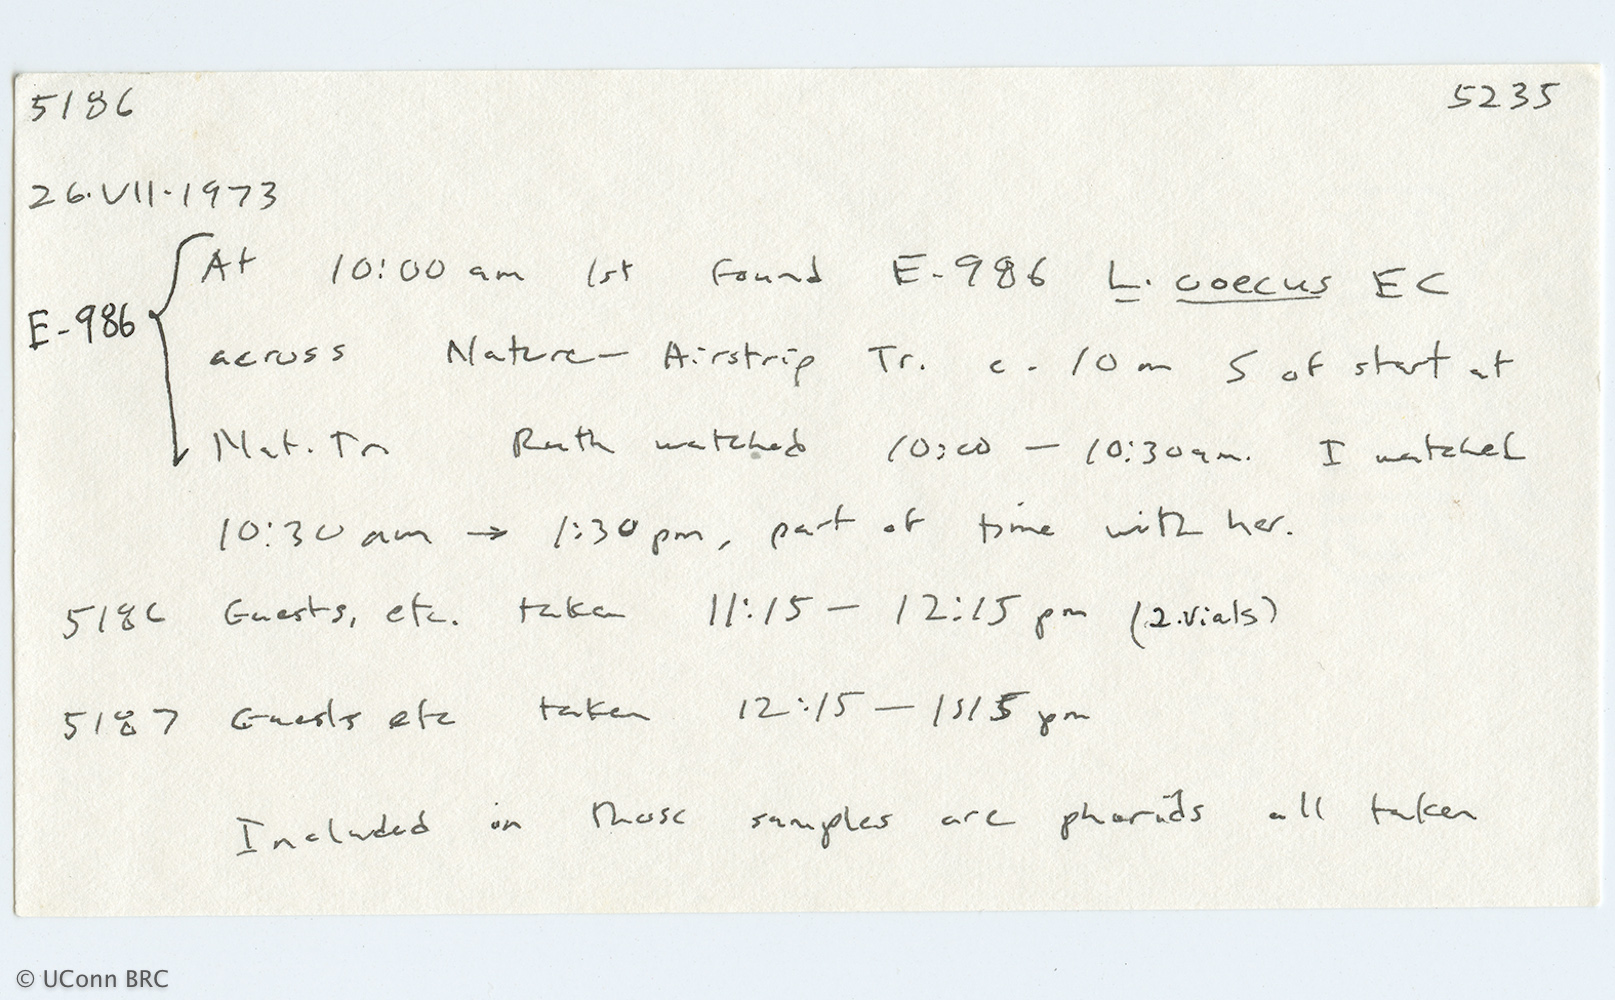 5186 5235
26.VII.1973
E-986 { At 10:00 am 1st found E-986 L. coecus EC
across Nature-Airstrip Tr. c. 10 m S of start at
Nat. Tr. Ruth watched 10:00 – 10:30 am. I watched
10:30 am → 1:30 pm, part of time with her.
5186 Guests, etc. taken 11:15 – 12:15 pm (2 vials)
5187 Guests etc taken 12:15 – 1:15 pm
Included in those samples are phorids all taken
© UConn BRC